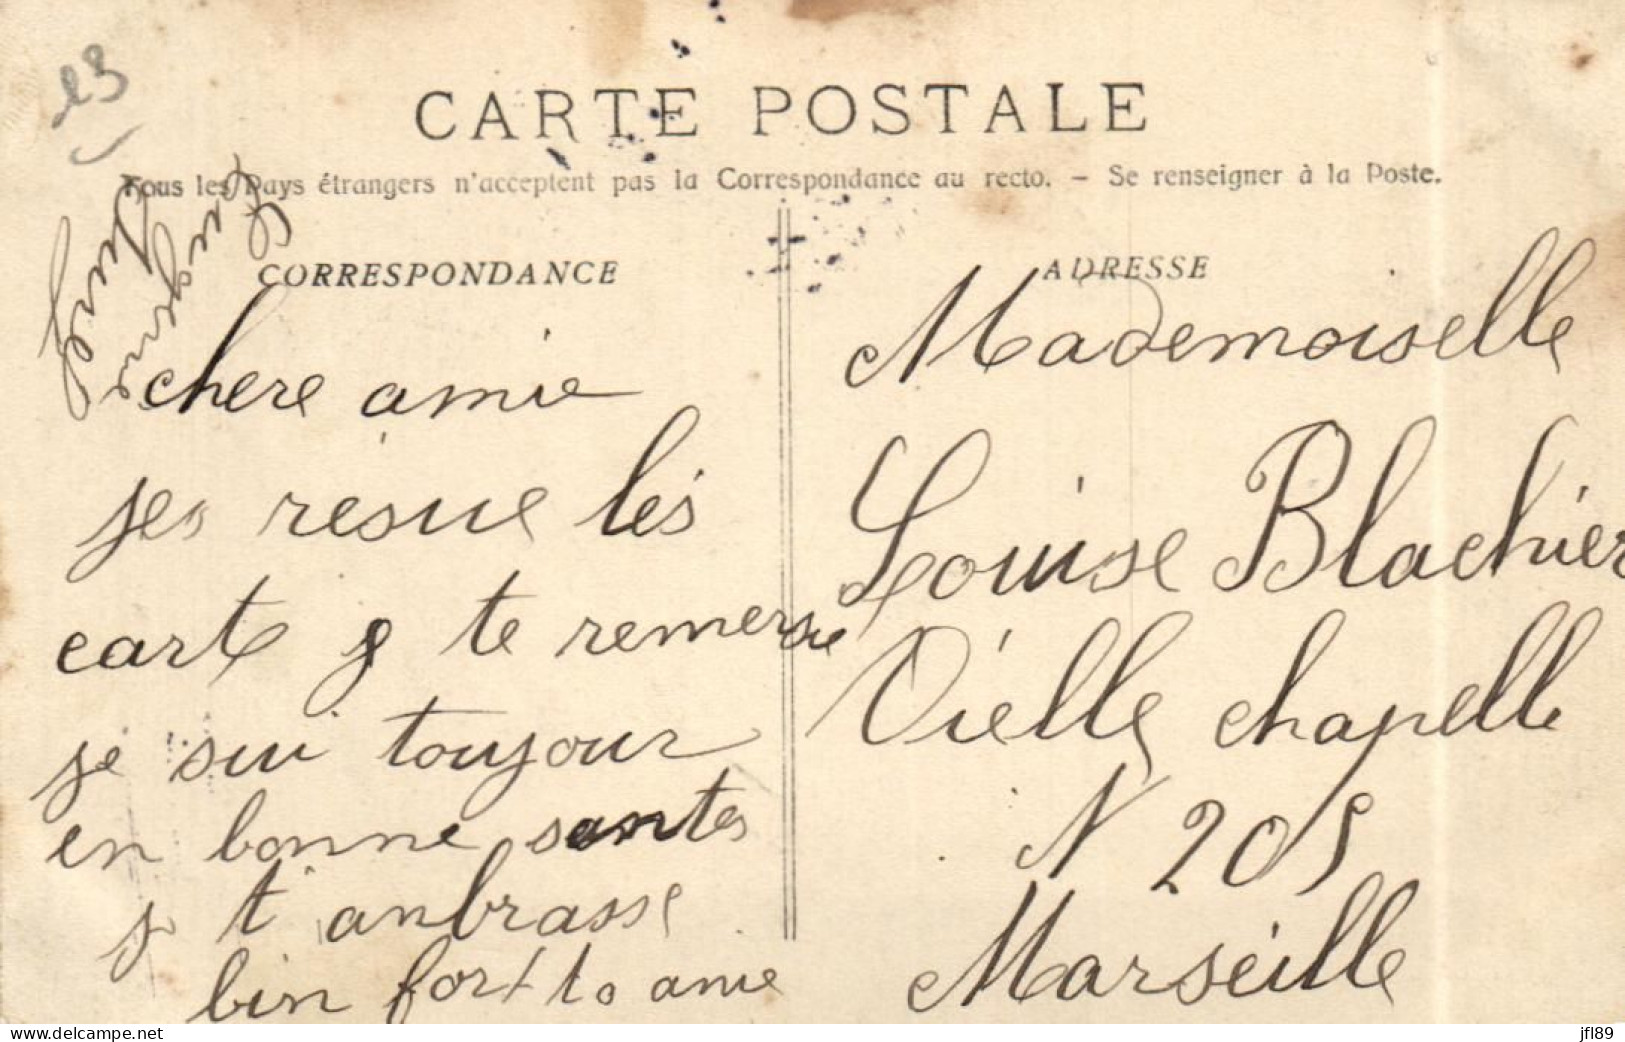 23
CARTE POSTALE
Tous les Pays étrangers n'acceptent pas la Correspondance au recto. – Se renseigner à la Poste.
CORRESPONDANCE
chere amie
jes resue les
carte j te remersie
je sui toujour
en bonne santes
je t anbrasse
bin fort to amie
Eugenie
ADRESSE
Mademoiselle
Louise Blachier
Vielle chapelle
N 205
Marseille
www.delcampe.net
jfl89